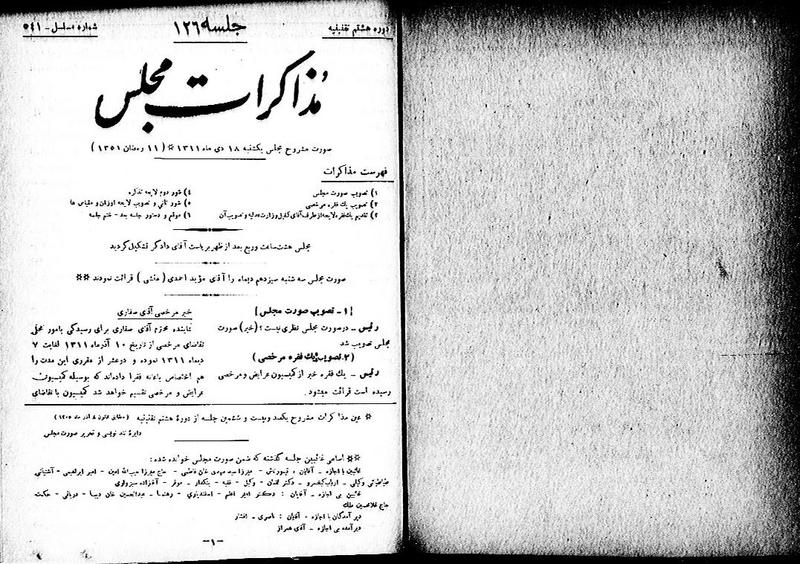 دوره هشتم تقنینیه
جلسه ۱۲۶
شماره مسلسل - ۵۴۱
مذاکرات مجلس
صورت مشروح مجلس یکشنبه ۱۸ دی ماه ۱۳۱۱ * (۱۱ رمضان ۱۳۵۱)
فهرست مذاکرات
۱) تصویب صورت مجلس
۲) تصویب یك فقره مرخصی
۳) تقدیم یك فقره لایحه از طرف آقای کفیل وزارت عدلیه و تصویب آن
۴) شور دوم لایحه تذکره
۵) شور ثانی و تصویب لایحه اوزان و مقیاس ها
۶) موقع و دستور جلسه بعد - ختم جلسه
مجلس هشت ساعت وربع بعد از ظهر بریاست آقای دادگر تشکیل گردید
صورت مجلس سه شنبه سیزدهم دیماه را آقای مؤید احمدی (منشی) قرائت نمودند **
[۱ - تصویب صورت مجلس]
رئیس - در صورت مجلس نظری نیست؟ (خیر) صورت
مجلس تصویب شد
(۲. تصویب یك فقره مرخصی)
رئیس - یك فقره خبر از کمیسیون عرایض و مرخصی
رسیده است قرائت میشود.
خبر مرخصی آقای صفاری
نماینده محترم آقای صفاری برای رسیدگی بامور محلی
تقاضای مرخصی از تاریخ ۱۰ آذرماه ۱۳۱۱ لغایت ۷
دیماه ۱۳۱۱ نموده و دو عشر از مقرری این مدت را
هم اختصاص باعانه فقرا داده‌اند که بوسیله کمیسیون
عرایض و مرخصی تقسیم خواهد شد کمیسیون با تقاضای
* عین مذاکرات مشروح یکصد و بیست و ششمین جلسه از دورهٔ هشتم تقنینیه (مطابق قانون ۸ آذر ماه ۱۳۰۵)
دایرهٔ تند نویسی و تحریر صورت مجلس
** اسامی غائبین جلسه گذشته که ضمن صورت مجلس خوانده شده:
غائبین با اجازه - آقایان: تیمورتاش - میرزا سید مهدی خان فاطمی - حاج میرزا حبیب الله امین - امیر ابراهیمی - آشتیانی
طباطبائی وکیلی - ارباب کیخسرو - دکتر لقمان - وکیل - فقیه - بنکدار - موقر - آقا زاده سبزواری
غائبین بی اجازه - آقایان: دکتر امیر اعلم - اسفندیاری - رهنما - عبدالحسین خان دیبا - دربانی - حکمت
حاج غلامحسین ملك
دیر آمدگان با اجازه - آقایان: ناصری - افشار
دیر آمده بی اجازه - آقای همراز
-۱-